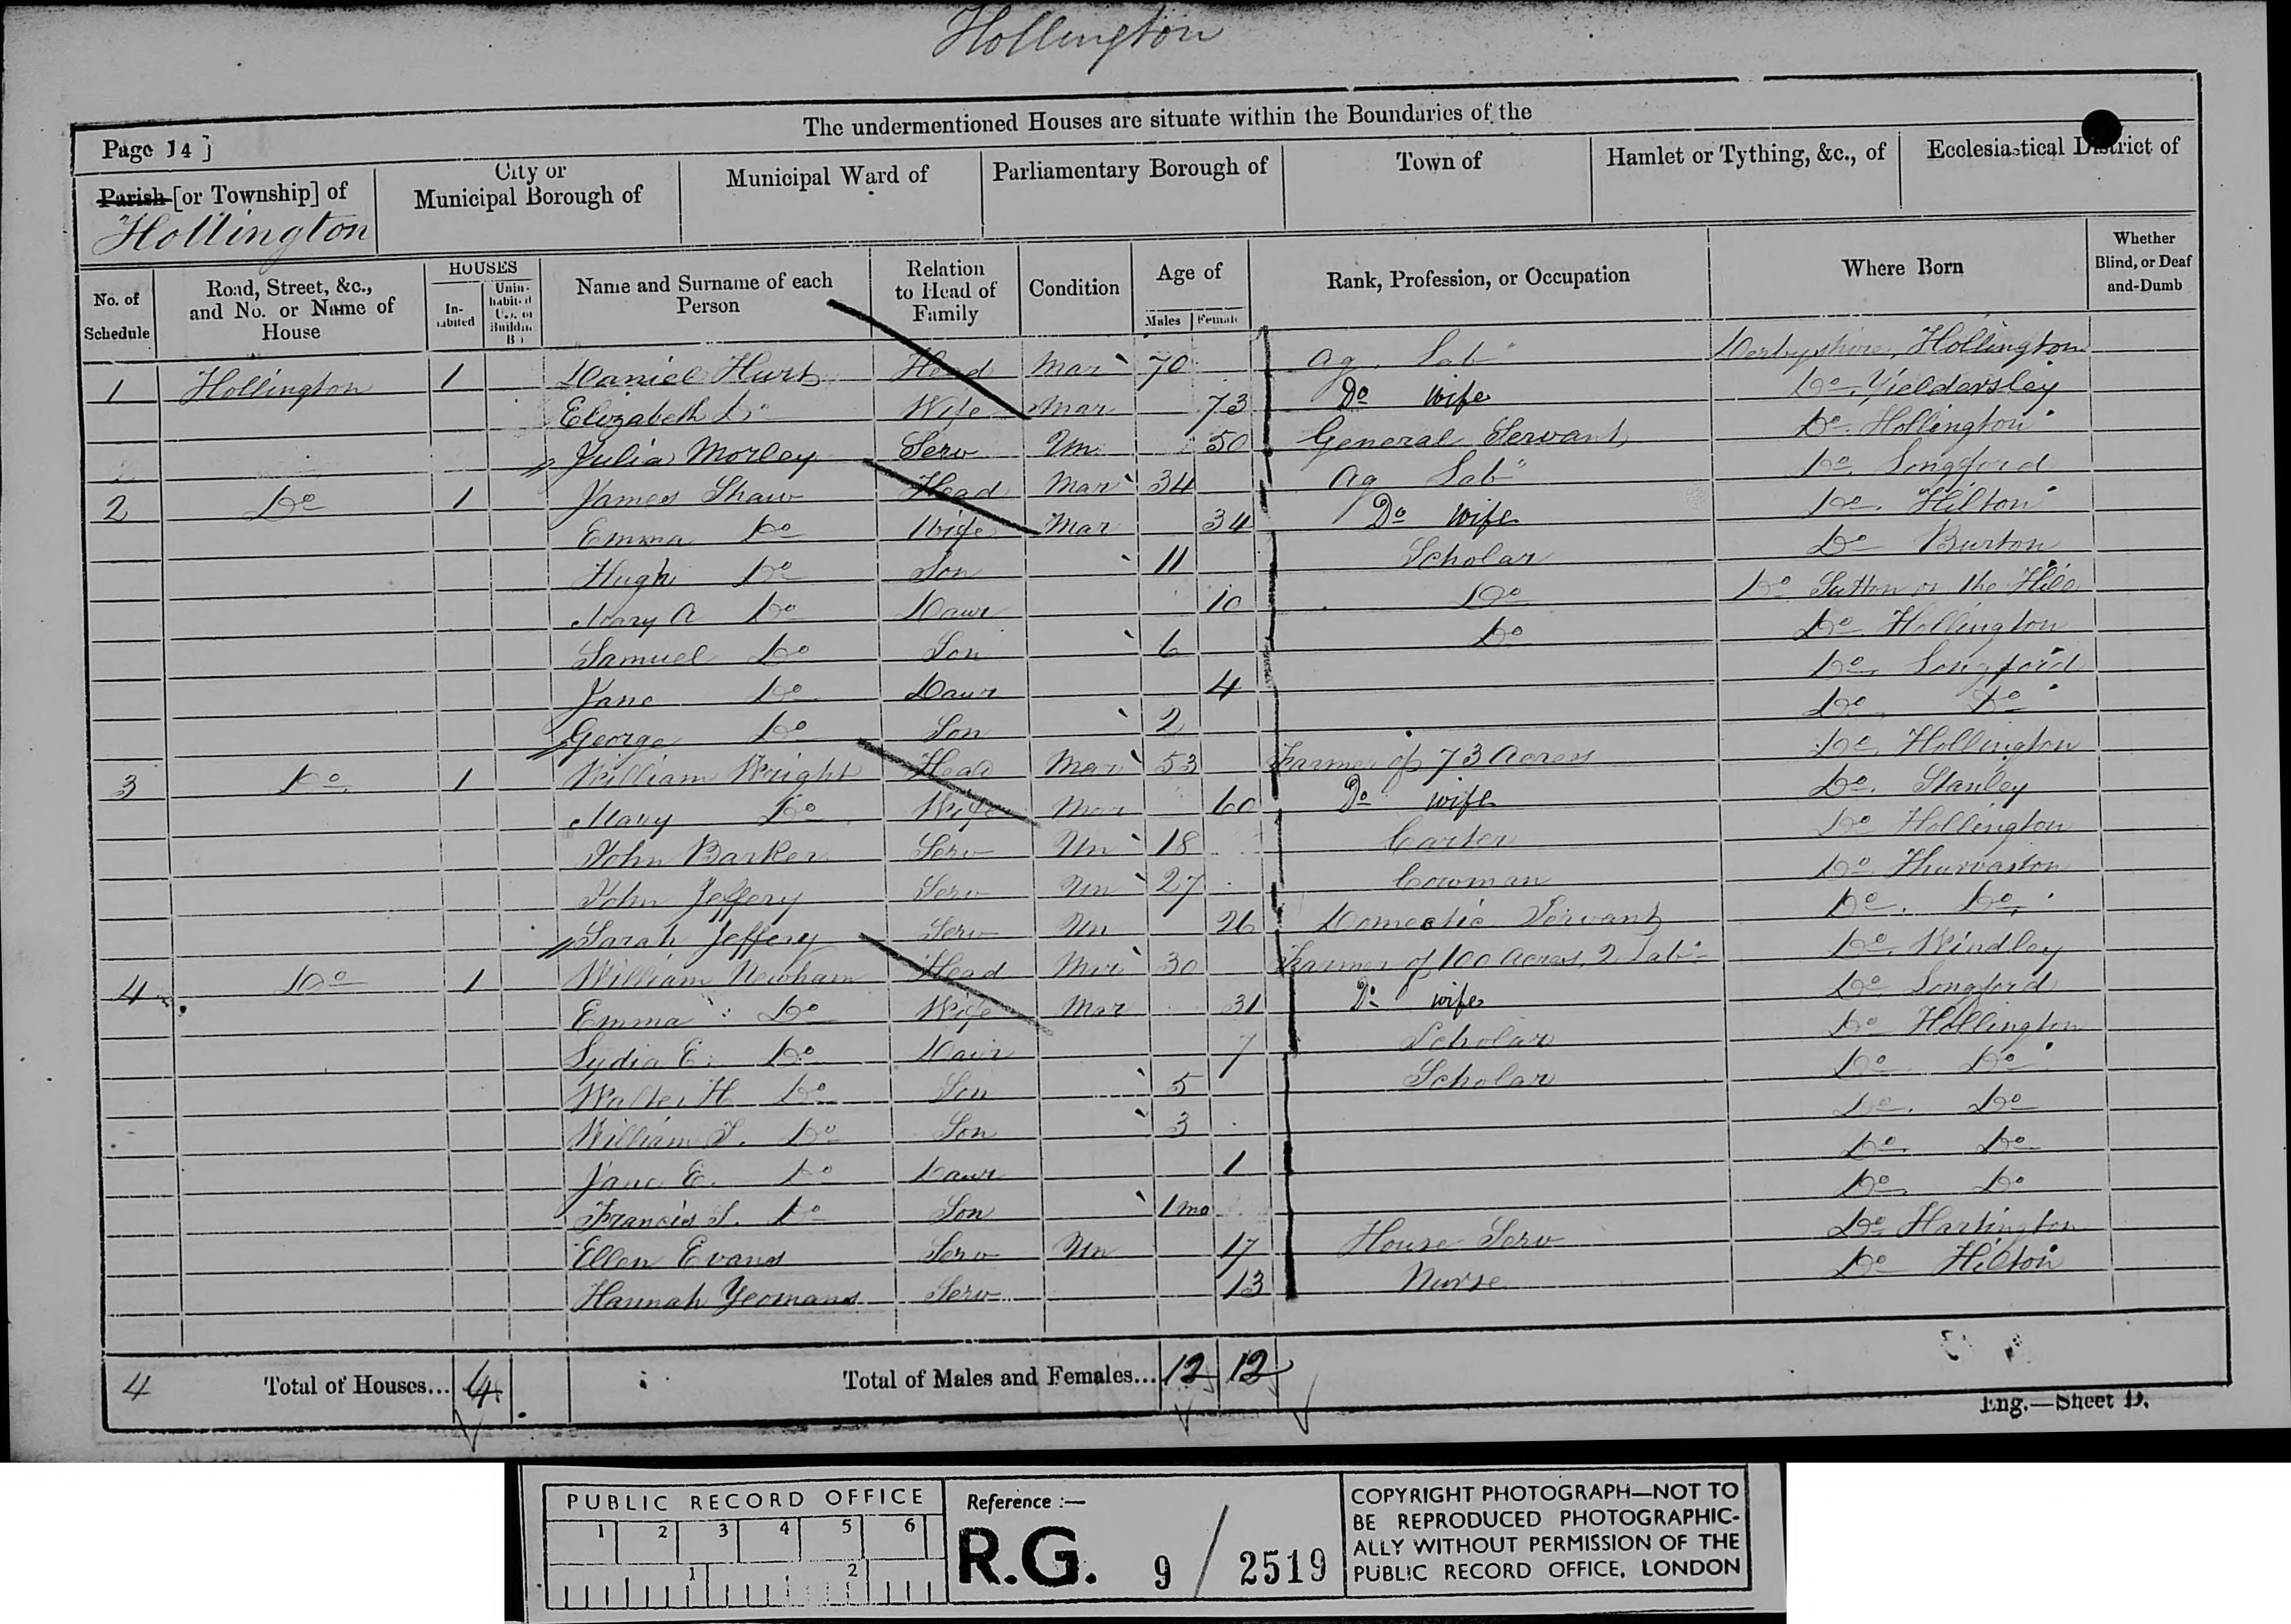 Hollington
The undermentioned Houses are situate within the Boundaries of the
Page 14 ]
Parish [or Township] of
Hollington
City or
Municipal Borough of
Municipal Ward of
Parliamentary Borough of
Town of
Hamlet or Tything, &c., of
Ecclesiastical District of
No. of Schedule
Road, Street, &c., and No. or Name of House
HOUSES
In-habited
Unin-habited U., or Buildin B
Name and Surname of each Person
Relation to Head of Family
Condition
Age of
Males Female
Rank, Profession, or Occupation
Where Born
Whether Blind, or Deaf and-Dumb
1 Hollington 1 Daniel Hurt Head Mar 70 Ag. Lab Derbyshire, Hollington
Elizabeth Do Wife Mar 73 Do wife Do Yieldersley
Julia Morley Serv Un 50 General Servant Do Hollington
2 Do 1 James Shaw Head Mar 34 Ag Lab Do Longford
Emma Do Wife Mar 34 Do wife Do Hilton
Hugh Do Son 11 Scholar Do Burton
Mary A Do Daur 10 Do Do Sutton on the Hill
Samuel Do Son 6 Do Do Hollington
Jane Do Daur 4 Do Longford
George Do Son 2 Do Do
3 Do 1 William Wright Head Mar 53 Farmer of 73 Acres Do Hollington
Mary Do Wife Mar 60 Do wife Do Stanley
John Barker Serv Un 18 Carter Do Hollington
John Jeffery Serv Un 27 Cowman Do Thurvaston
Sarah Jeffery Serv Un 26 Domestic Servant Do Do
4 Do 1 William Newham Head Mar 30 Farmer of 100 Acres, 2 Lab Do Windley
Emma Do Wife Mar 31 Do wife Do Longford
Lydia E. Do Daur 7 Scholar Do Hollington
Walter H Do Son 5 Scholar Do Do
William S. Do Son 3 Do Do
Jane E. Do Daur 1 Do Do
Francis S. Do Son 1 mo Do Do
Ellen Evans Serv Un 17 House Serv Do Hartington
Hannah Yeomans Serv 13 Nurse Do Hilton
4 Total of Houses... 4 Total of Males and Females... 12 12
Eng.—Sheet D.
PUBLIC RECORD OFFICE
1 2 3 4 5 6
1 2
Reference :—
R.G. 9 / 2519
COPYRIGHT PHOTOGRAPH—NOT TO
BE REPRODUCED PHOTOGRAPHIC-
ALLY WITHOUT PERMISSION OF THE
PUBLIC RECORD OFFICE, LONDON